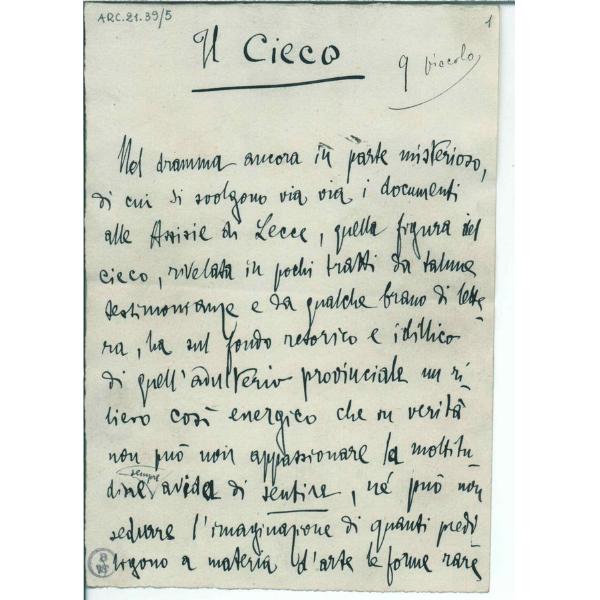 ARC.21.39/5
1
Il Cieco
9 piccolo
Nel dramma ancora in parte misterioso,
di cui si svolgono via via i documenti
alle Assisie di Lecce, quella figura del
cieco, rivelata in pochi tratti da talune
testimonianze e da qualche brano di lette
ra, ha sul fondo retorico e idillico
di quell'adulterio provinciale un ri
lievo così energico che in verità
non può non appassionare la moltitu
sempre
dine avida di sentire, né può non
sedurre l'imaginazione di quanti predi
ligono a materia d'arte le forme rare